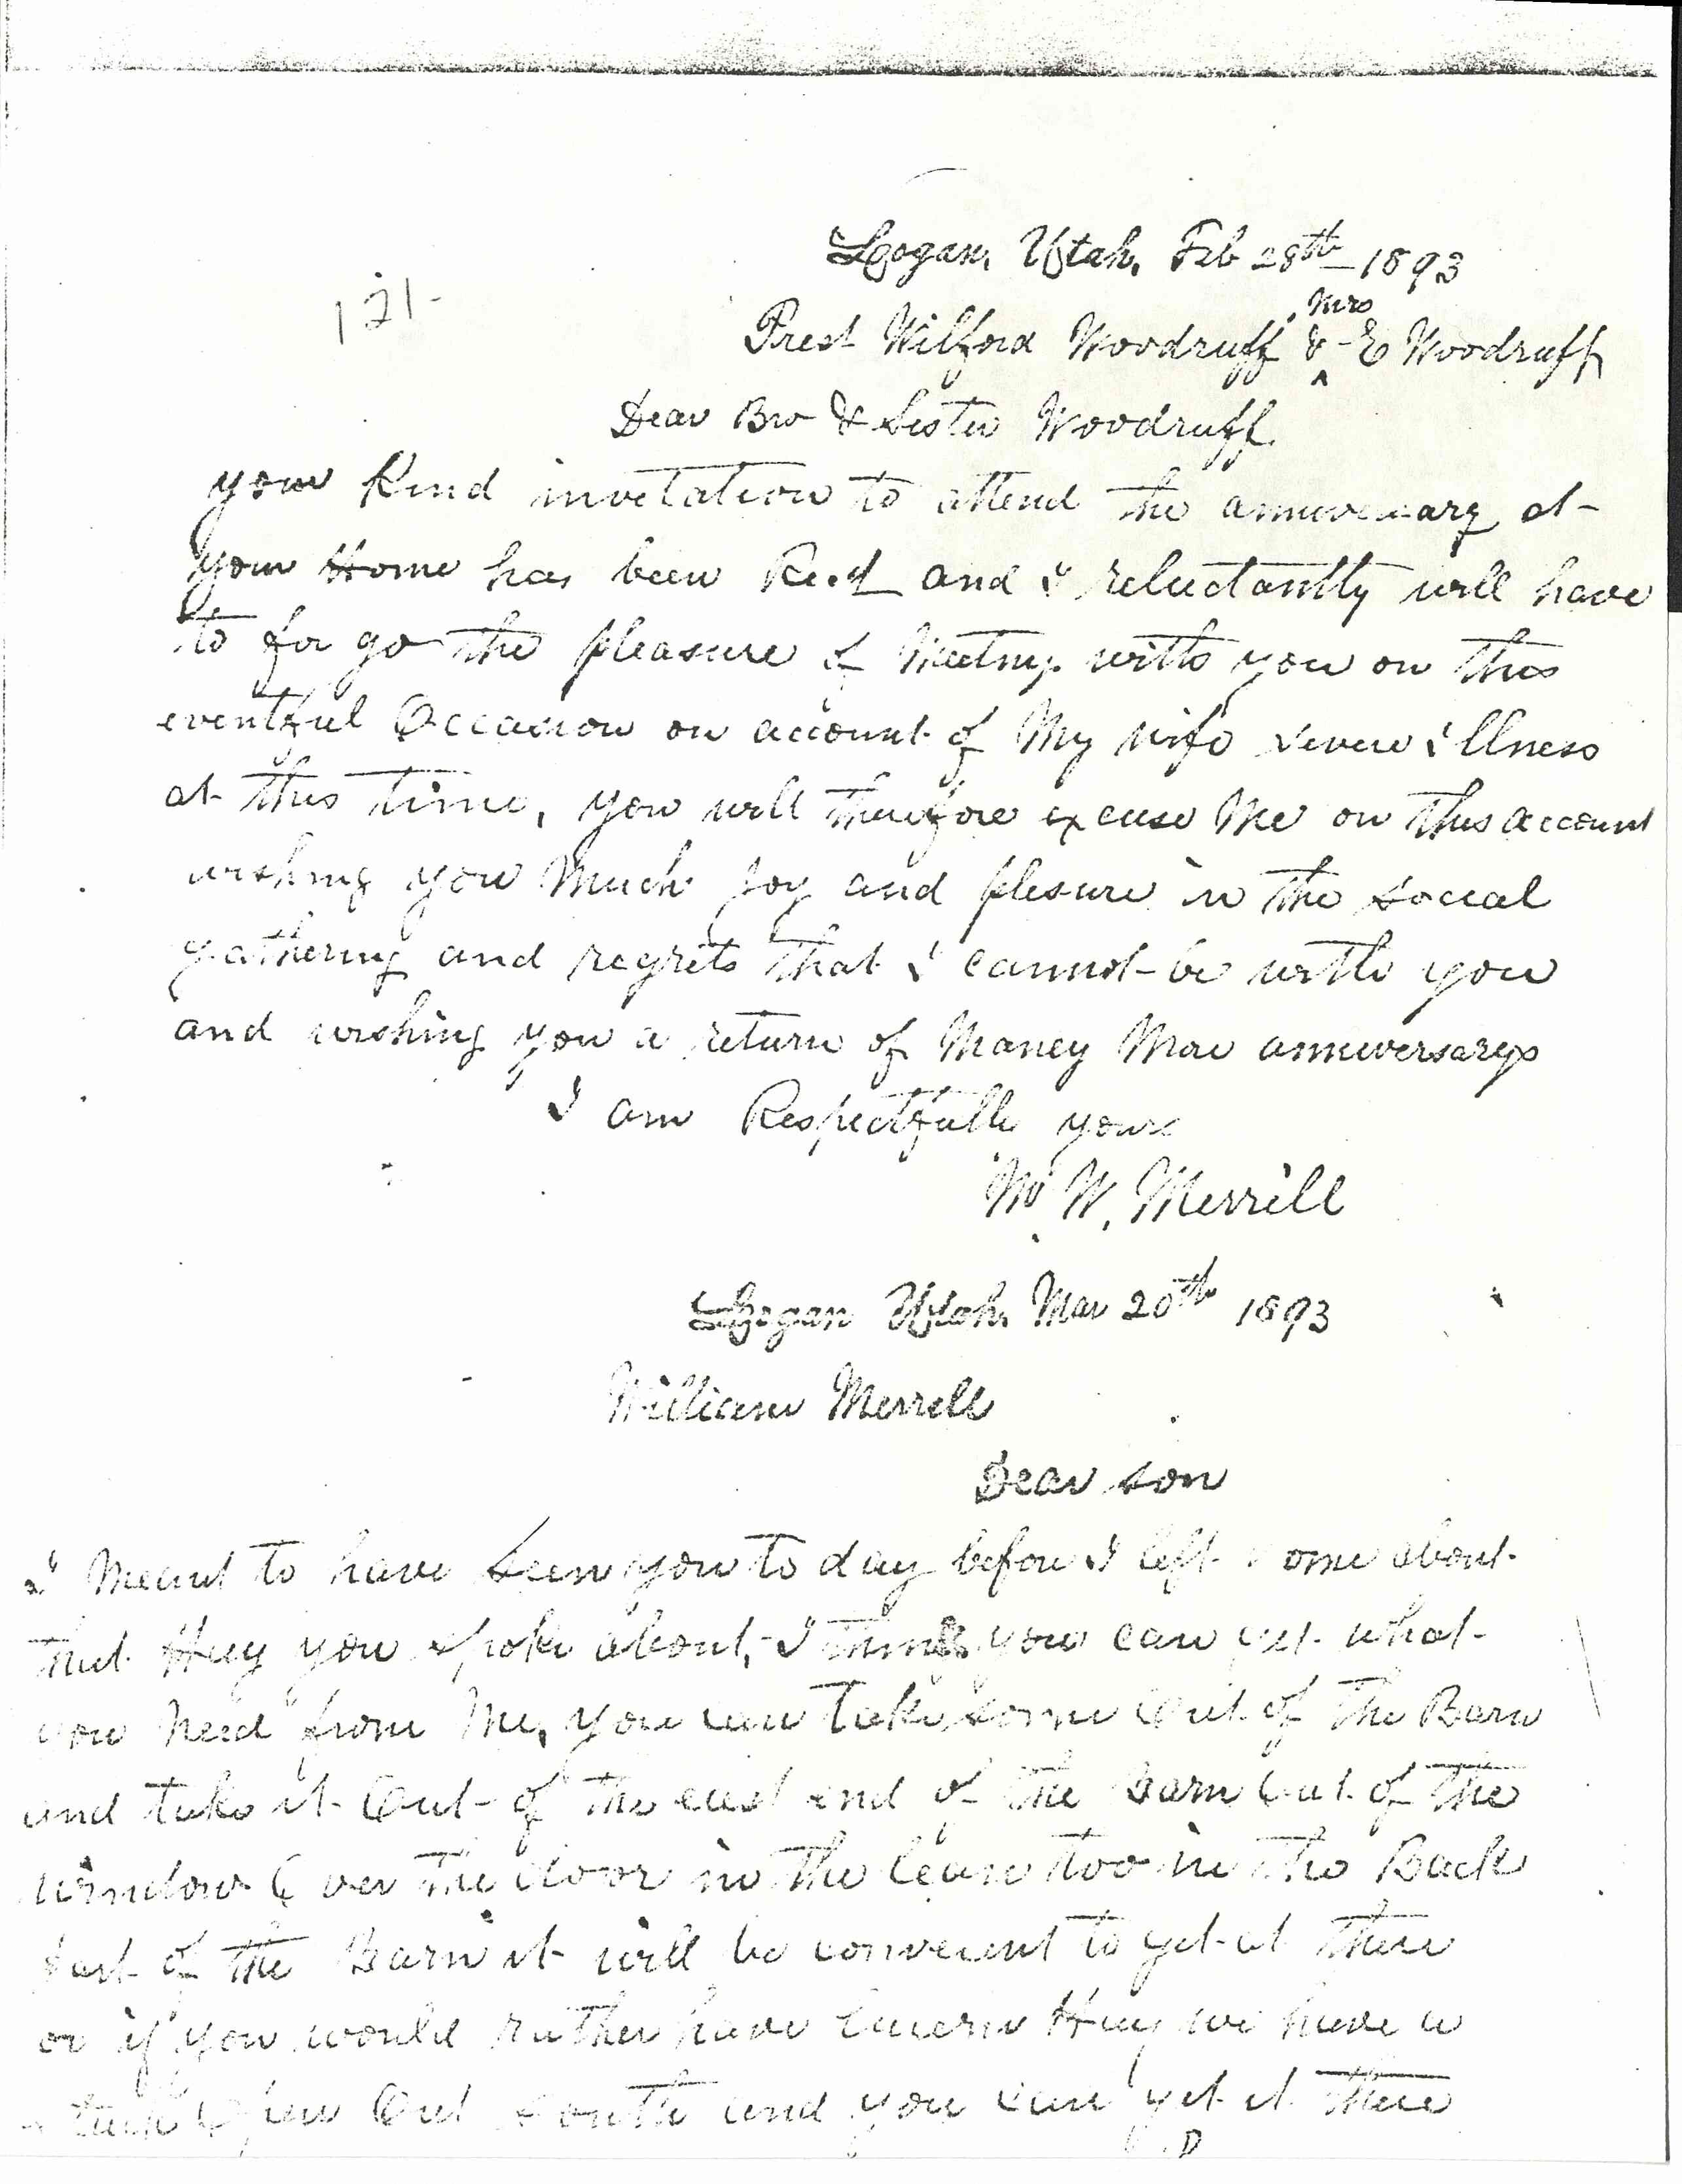 Logan, Utah, Feb 28th 1893
121-
Mrs
Prest Wilford Woodruff & E Woodruff
Dear Bro & Sister Woodruff.
your Kind invitation to attend the anniversary at
your Home has been Recd and I reluctantly will have
to for go the pleasure of Meeting with you on this
eventful Occasion on account of My wife severe illness
at this time, you will therefore excuse Me on this account
wishing you Much joy and plesure in the social
gathering and regrets that I cannot be with you
and wishing you a return of Maney More anniversarys
I am Respectfully yours
M. W. Merrill
Logan Utah, Mar 20th 1893
William Merrill
Dear son
I Meant to have seen you to day before I left home about
that Hay you spoke about, I think you can get what
you Need from Me, you can take some Out of the Barn
and take it Out of the east end of the Barn Out of the
window Over the door in the lean too in the Back
part of the Barn it will be convenient to get at there
or if you would rather have Lucern Hay we have a
stack Open Out South and you can get it there